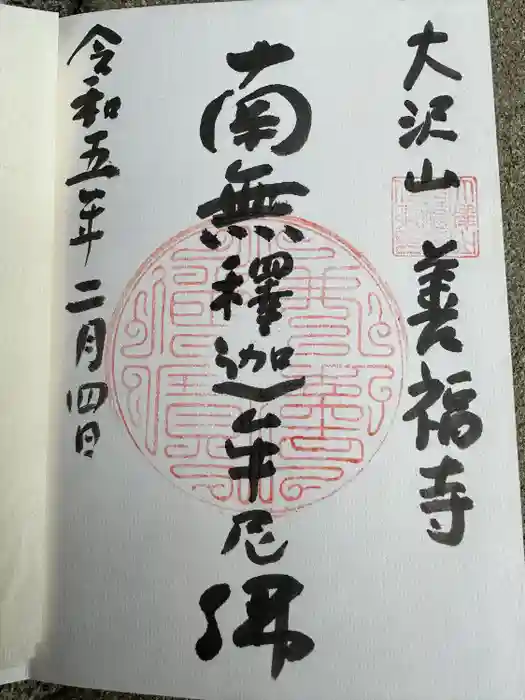 大沢山 善福寺
南無釋迦牟尼佛
令和五年 二月四日